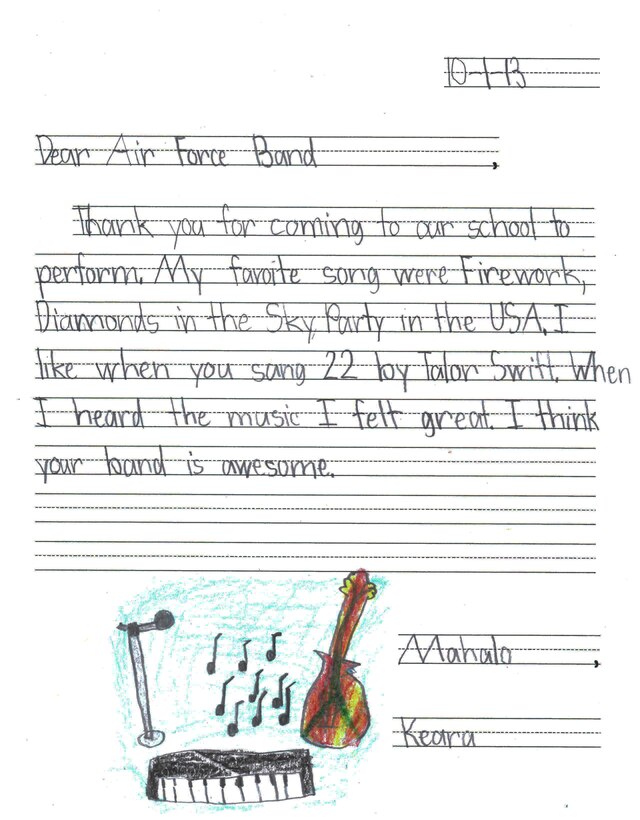 10-1-13
Dear Air Force Band,
Thank you for coming to our school to
perform. My favoite song were Firework,
Diamonds in the Sky, Party in the USA. I
like when you sang 22 by Talor Swift. When
I heard the music I felt great. I think
your band is awesome.
Mahalo,
Keara